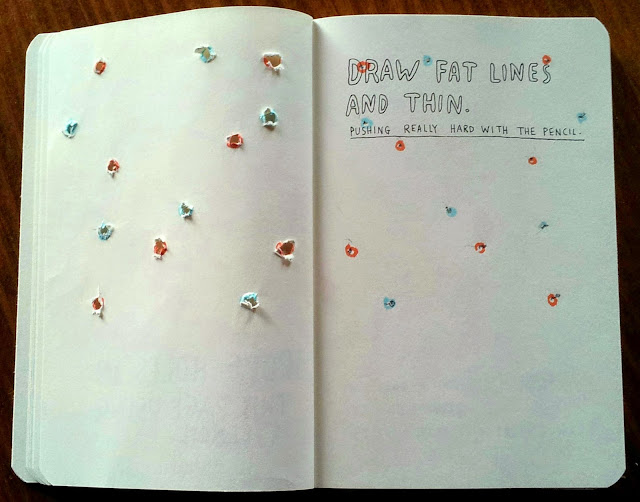 DRAW FAT LINES
AND THIN.
PUSHING REALLY HARD WITH THE PENCIL.